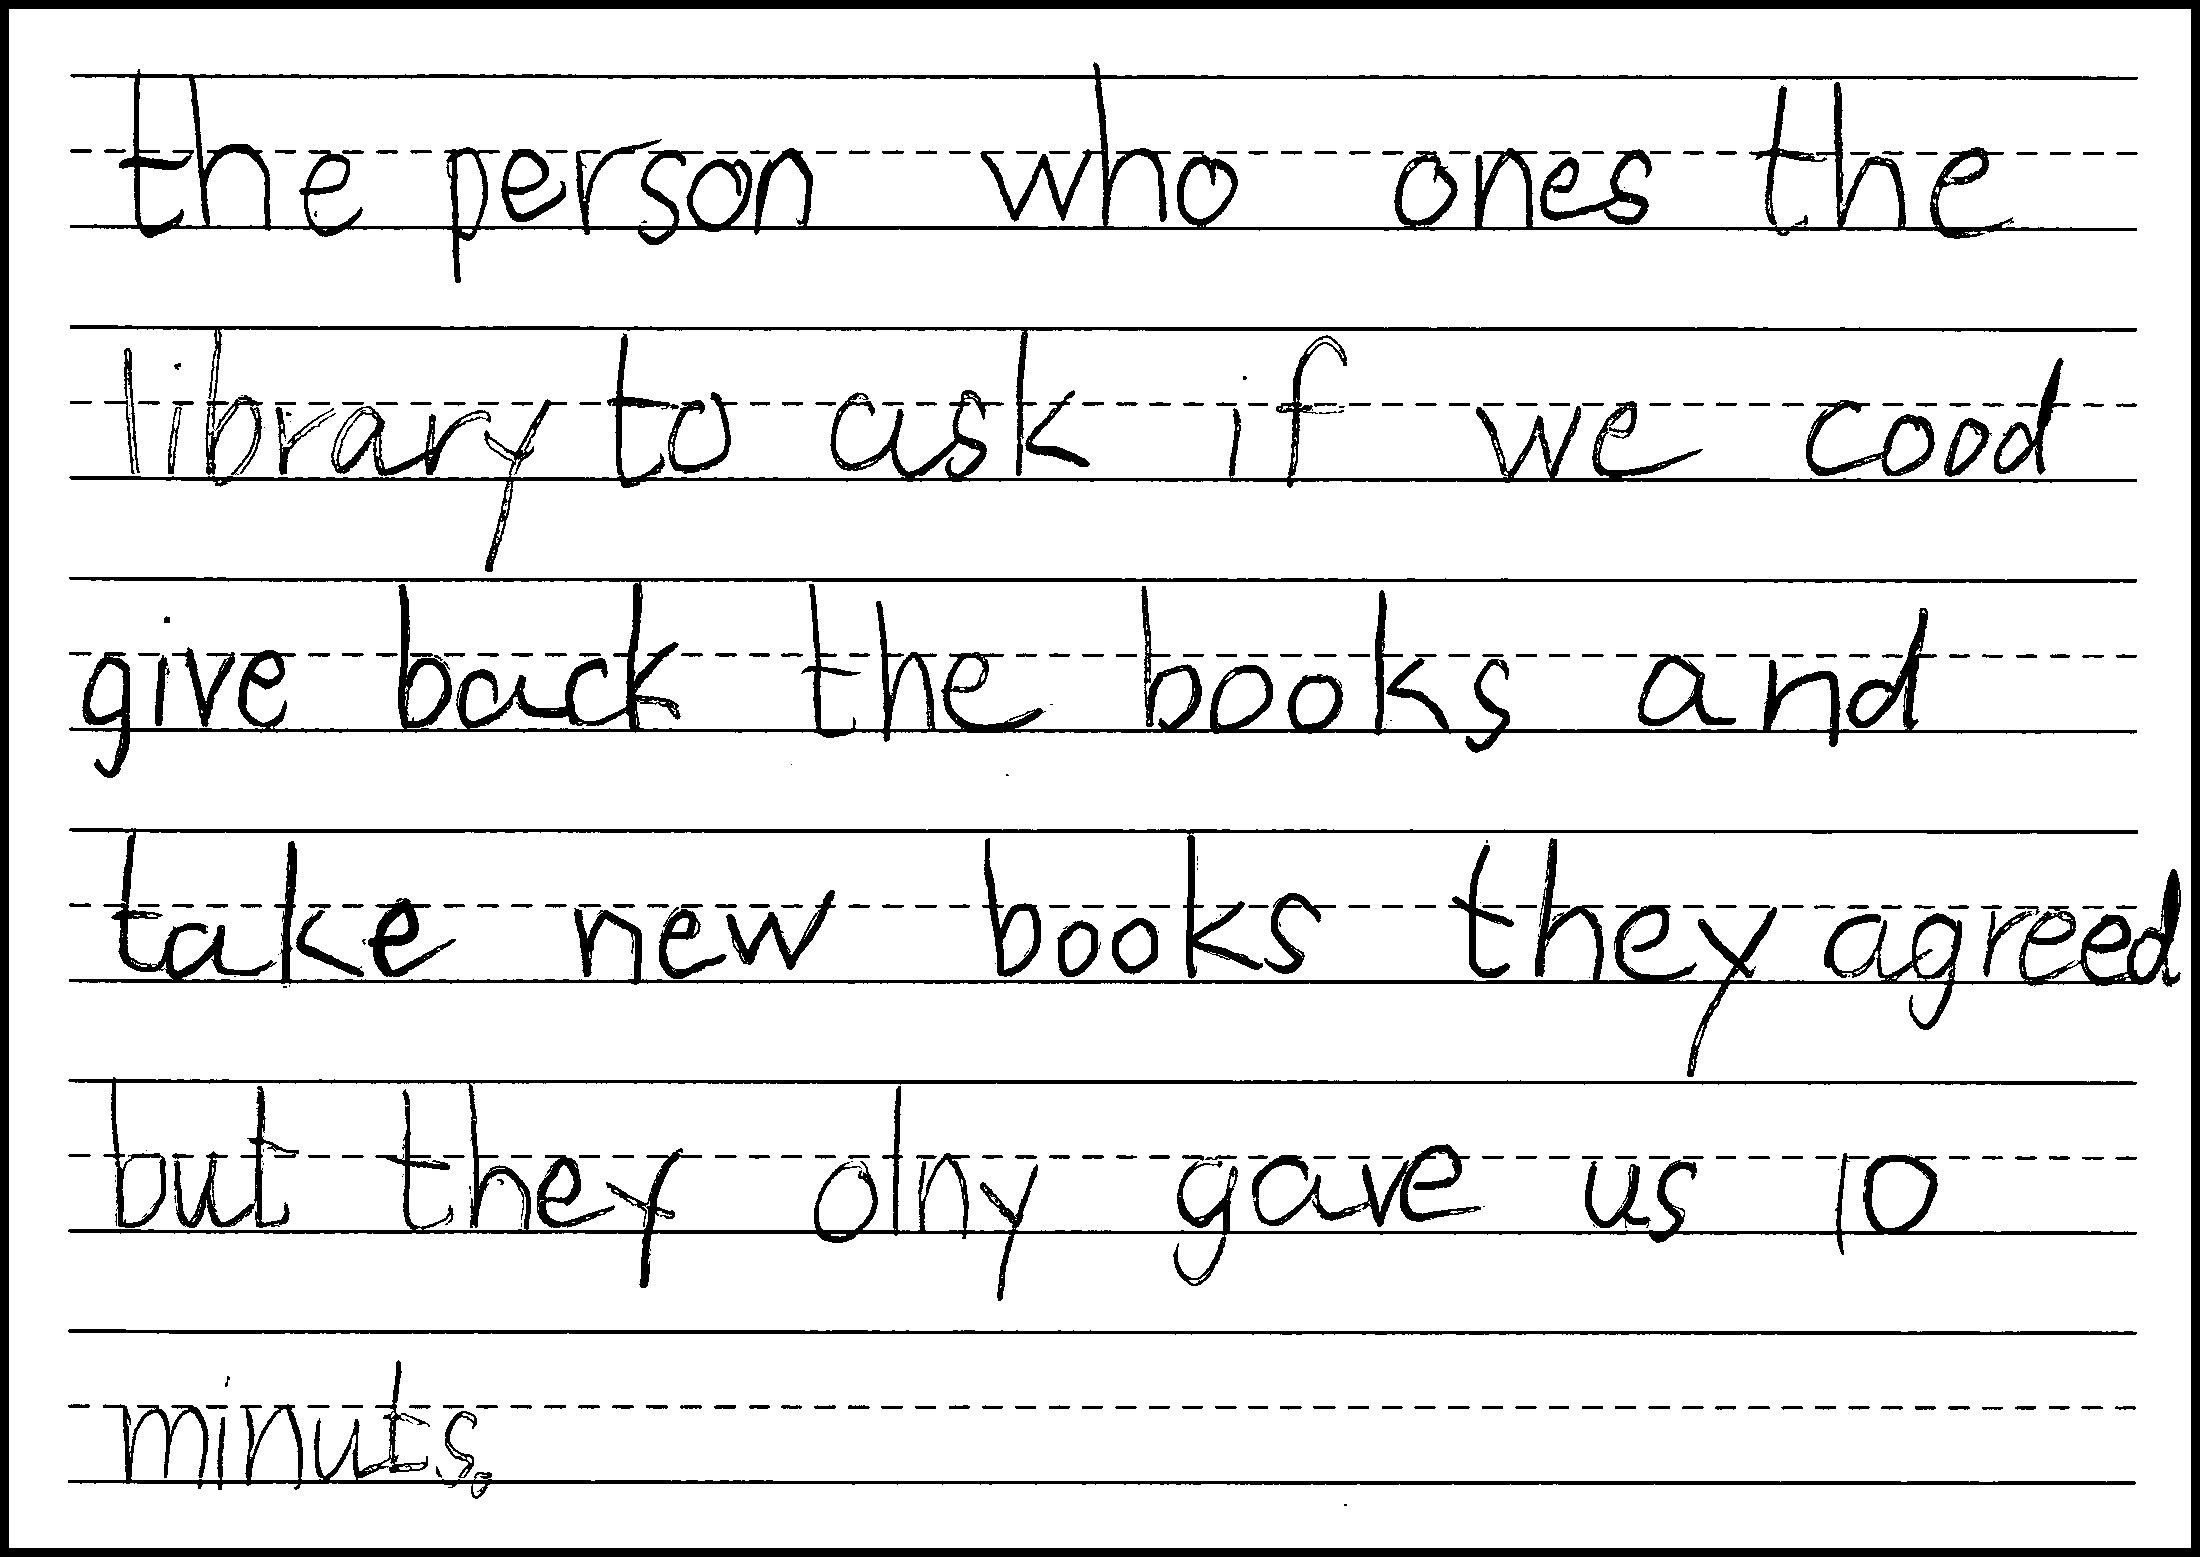 the person who ones the
library to ask if we cood
give back the books and
take new books they agreed
but they olny gave us 10
minuts.